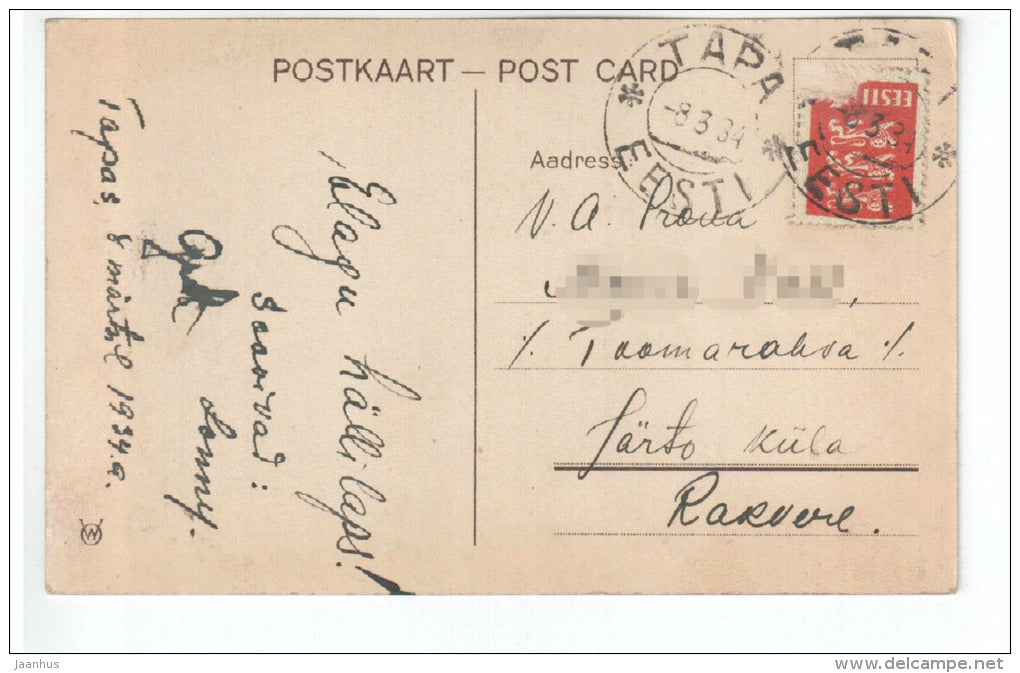 POSTKAART — POST CARD
* TAPA *
-8.3.34
EESTI
EESTI
8.3.34
EESTI
Aadress:
V. A. Proua
/. Toomarahva /.
Järto küla
Rakvere.
Elagu hälli-laps!
soovivad:
Lonny.
Tapas, 8 märtsil 1934.a.
Jaanhus
www.delcampe.net